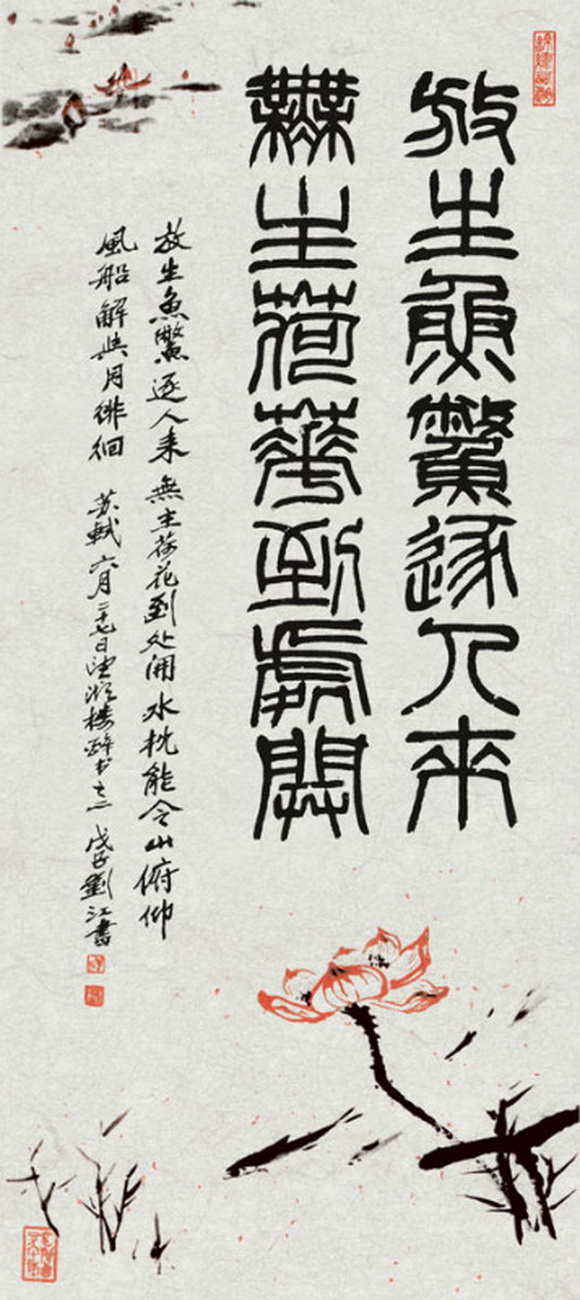 放生魚鱉逐人來
無主荷華到處開
放生魚鱉逐人来無主荷花到处開水枕能令山俯仰
風船解與月徘徊 苏軾六月二十七日望湖楼醉书之二 戊子劉江書